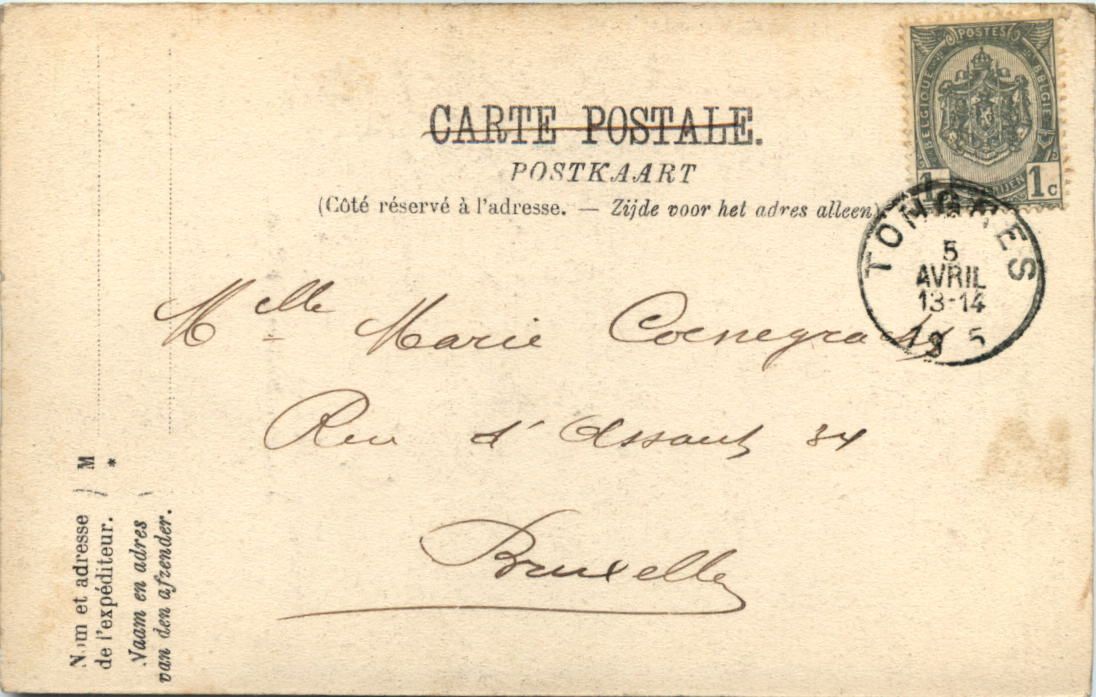 CARTE POSTALE.
POSTKAART
(Côté réservé à l'adresse. — Zijde voor het adres alleen)
POSTES
BELGIQUE BELGIE
1 1c
TONGRES
5
AVRIL
13-14
19 5
Melle Marie
Rue d'Assaut 34
Bruxelles
M
*
Nom et adresse
de l'expéditeur.
Naam en adres
van den afzender.